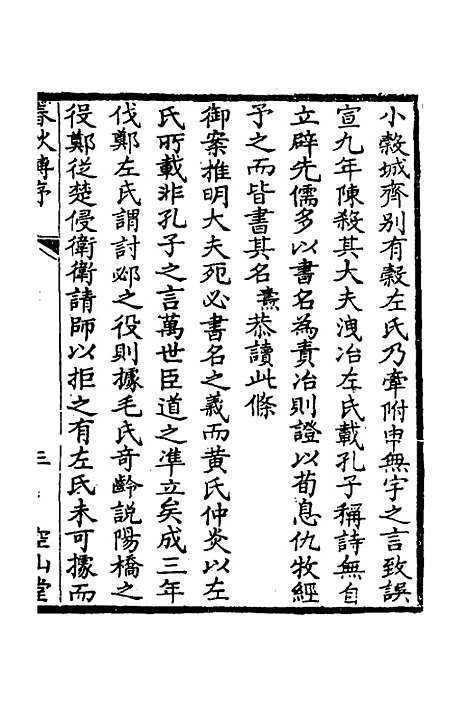 小穀城齊别有穀左氏乃牽附申無宇之言致誤
宣九年陳殺其大夫洩冶左氏載孔子稱詩無自
立辟先儒多以書名為責冶則證以荀息仇牧經
予之而皆書其名燾恭讀此條
御案推明大夫死必書名之義而黄氏仲炎以左
氏所載非孔子之言萬世臣道之準立矣成三年
伐鄭左氏謂討邲之役則據毛氏奇齡説陽橋之
役鄭從楚侵衛衛請師以拒之有左氏未可據而
春秋傳序
三
空山堂